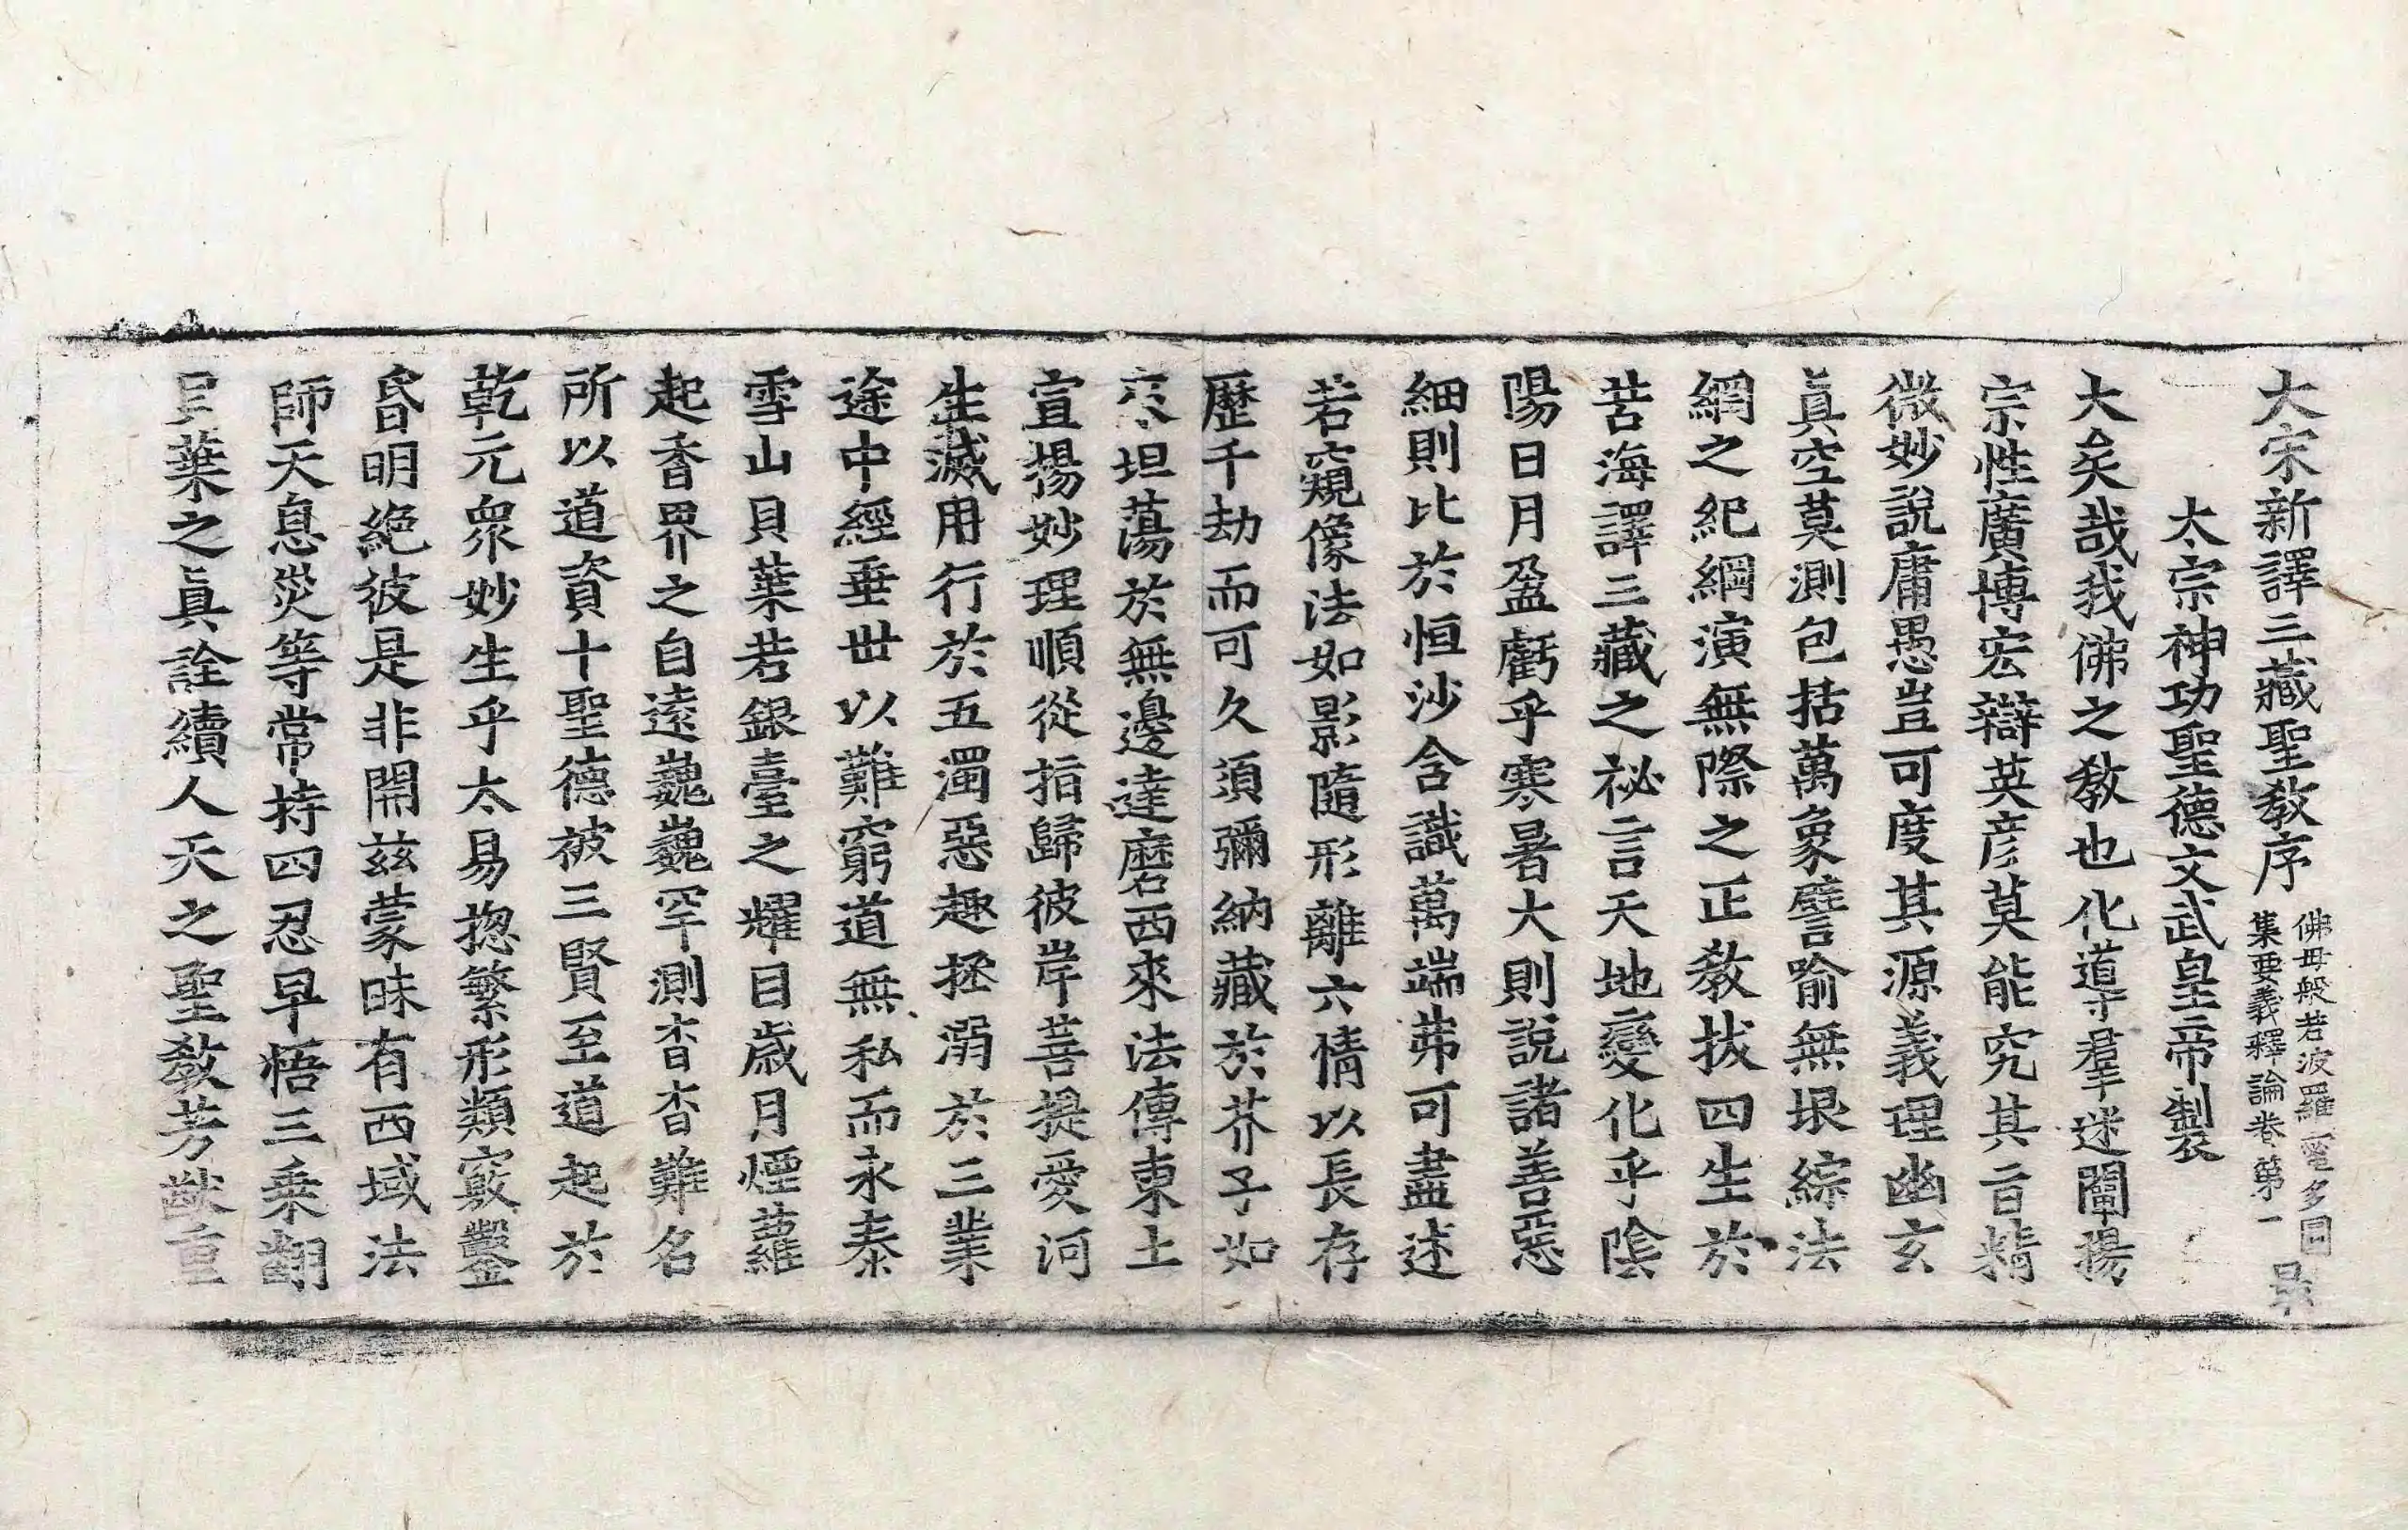 大宋新譯三藏聖教序 佛母般若波羅蜜多圓
集要義釋論卷第一 景
太宗神功聖德文武皇帝製
大矣哉我佛之教也化導羣迷闡揚
宗性廣博宏辯英彦莫能究其旨精
微妙說庸愚豈可度其源義理幽玄
眞空莫測包括萬象譬喻無垠綜法
網之紀綱演無際之正教拔四生於
苦海譯三藏之祕言天地變化乎陰
陽日月盈虧乎寒暑大則說諸善惡
細則比於恒沙含識萬端弗可盡述
若窺像法如影隨形離六情以長存
歷千劫而可久須彌納藏於芥子如
來坦蕩於無邊達磨西來法傳東土
宣揚妙理順從指歸彼岸菩提愛河
生滅用行於五濁惡趣拯溺於三業
途中經垂世以難窮道無私而永泰
雪山貝葉若銀臺之耀目歲月煙蘿
起香界之自遠巍巍罕測杳杳難名
所以道資十聖德被三賢至道起於
乾元衆妙生乎太易揔繁形類竅鑿
昏明絶彼是非開茲蒙昧有西域法
師天息災等常持四忍早悟三乘翻
貝葉之眞詮續人天之聖教芳猷重